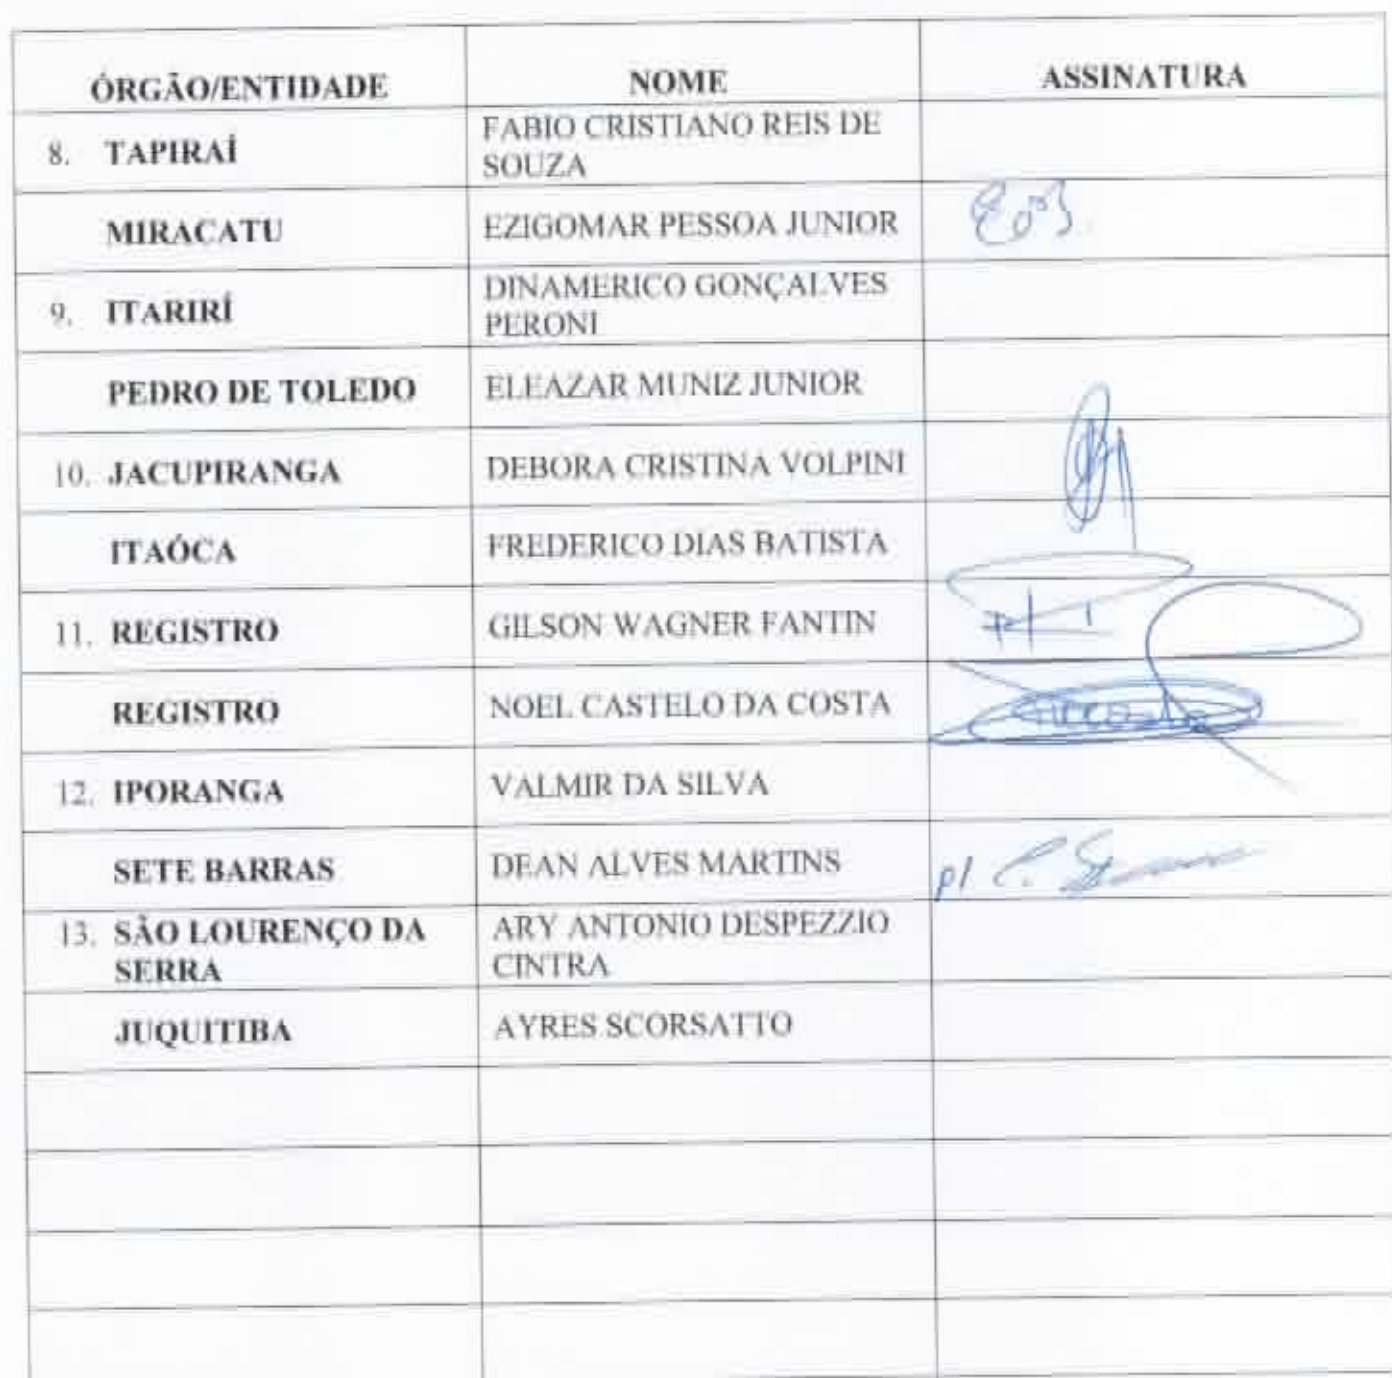 ÓRGÃO/ENTIDADE NOME ASSINATURA
8. TAPIRAÍ FABIO CRISTIANO REIS DE
SOUZA
MIRACATU EZIGOMAR PESSOA JUNIOR
9. ITARIRÍ DINAMERICO GONÇALVES
PERONI
PEDRO DE TOLEDO ELEAZAR MUNIZ JUNIOR
10. JACUPIRANGA DEBORA CRISTINA VOLPINI
ITAÓCA FREDERICO DIAS BATISTA
11. REGISTRO GILSON WAGNER FANTIN
REGISTRO NOEL CASTELO DA COSTA
12. IPORANGA VALMIR DA SILVA
SETE BARRAS DEAN ALVES MARTINS p/
13. SÃO LOURENÇO DA ARY ANTONIO DESPEZZIO
SERRA CINTRA
JUQUITIBA AYRES SCORSATTO